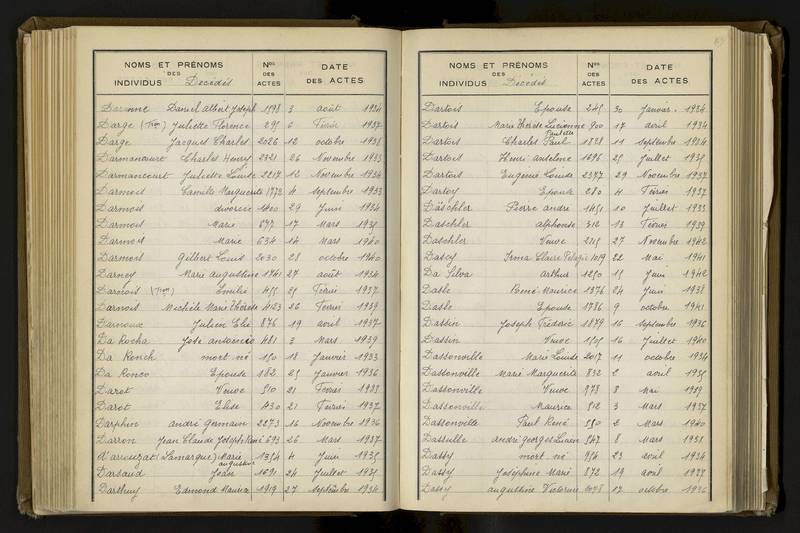 NOMS ET PRÉNOMS
DES
INDIVIDUS Décédés
Nos
DES
ACTES
DATE
DES ACTES
Daranne Daniel Albert Joseph 1598 3 août 1934
Darge (Tran) Juliette Florence 295 6 Février 1937
Darge Jacques Charles 2026 12 octobre 1938
Darmancourt Charles Henry 2321 26 Novembre 1933
Darmancourt Juliette Louise 2217 12 Novembre 1934
Darmois Camille Marguerite 1773 4 septembre 1933
Darmois divorcée 1400 29 Juin 1934
Darmois Marie 677 17 Mars 1935
Darmois Marie 634 14 Mars 1940
Darmois Gilbert Louis 2030 28 octobre 1940
Darney Marie augustine 1741 27 août 1934
Darnois Emilie 455 25 Février 1937
Darnois Michèle Marie Thérèse 26 Février 1939
Darnoux Julien Elie 876 19 avril 1937
Da Rocha José antoineio 481 3 Mars 1939
Da Ronch mort né 150 18 Janvier 1933
Da Ronco Epouse 182 25 Janvier 1936
Darot Veuve 510 21 Février 1933
Darot Elise 430 21 Février 1937
Darphin andré germain 2273 16 Novembre 1936
Darron Jean Claude Joseph René 693 26 Mars 1937
d'arrouzat (Lamarque) Marie augustine 1354 4 Juin 1935
Darsaud Jean 1691 24 Juillet 1935
Darthuy Edmond Maurice 1919 27 septembre 1934
NOMS ET PRÉNOMS
DES
INDIVIDUS Décédés
Nos
DES
ACTES
DATE
DES ACTES
Dartois Epouse 245 30 Janvier 1934
Dartois Marie Thérèse Lucienne Paulette 900 17 avril 1934
Dartois Charles Paul 1828 11 septembre 1934
Dartois Henri anselme 1696 25 Juillet 1935
Dartois Eugénie Louise 2377 29 Novembre 1937
Dartoy Epouse 280 4 Février 1937
Däschler Pierre andré 1451 10 Juillet 1933
Daschler alphonse 312 13 Février 1939
Daschler Veuve 2115 27 Novembre 1942
Dascy Irma Claire 1019 22 Mai 1941
Da Silva arthur 1250 15 Juin 1942
Dasle René Maurice 1376 24 Juin 1938
Dasle Epouse 1736 9 octobre 1941
Dassin Joseph Frédéric 1879 16 septembre 1936
Dassin Veuve 1505 16 Juillet 1940
Dassonville Marie Louise 2017 11 octobre 1934
Dassonville Marie Marguerite 832 2 avril 1935
Dassonville Veuve 973 8 Mai 1939
Dassonville Maurice 512 3 Mars 1937
Dassonville Paul René 550 2 Mars 1940
Dassulle andré georges Lucien 547 8 Mars 1938
Dassy mort né 956 23 avril 1934
Dassy Joséphine Marie 872 19 avril 1937
Dassy augustine Victorine 2078 17 octobre 1936